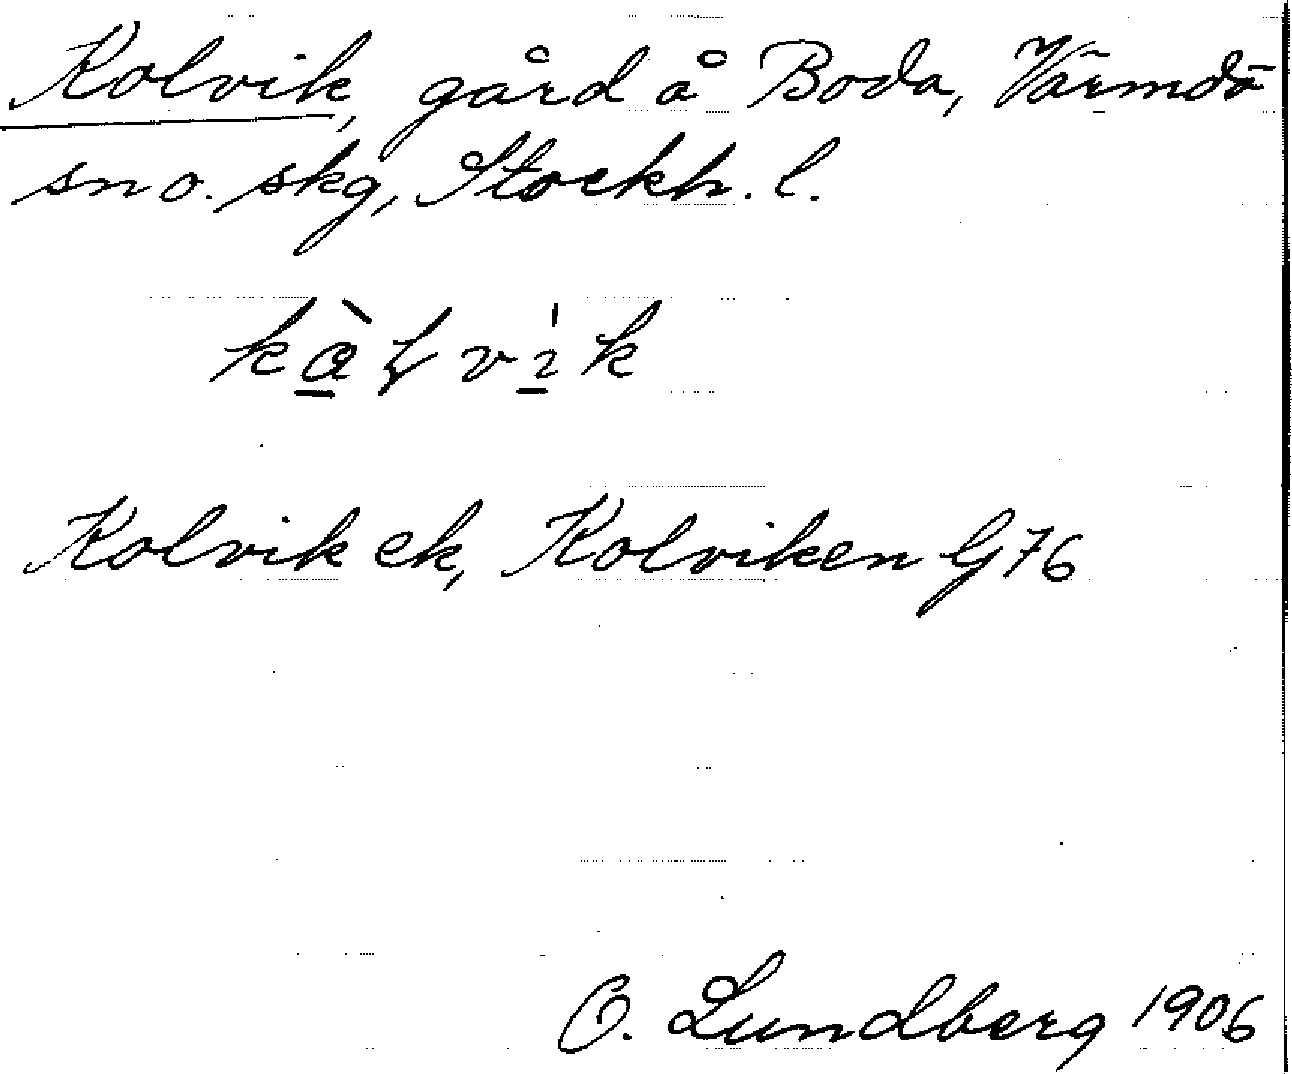 Kolvik, gård å Boda, Värmdö
sn o. skg, Stockh. l.
Kolvik ek, Kolviken G76
O. Lundberg 1906